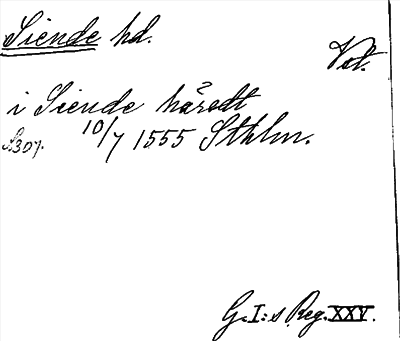 Siende hd.
Vst.
i Siende häredt
S. 307. 10/7 1555 Sthlm.
G. I:s Reg. XXV.